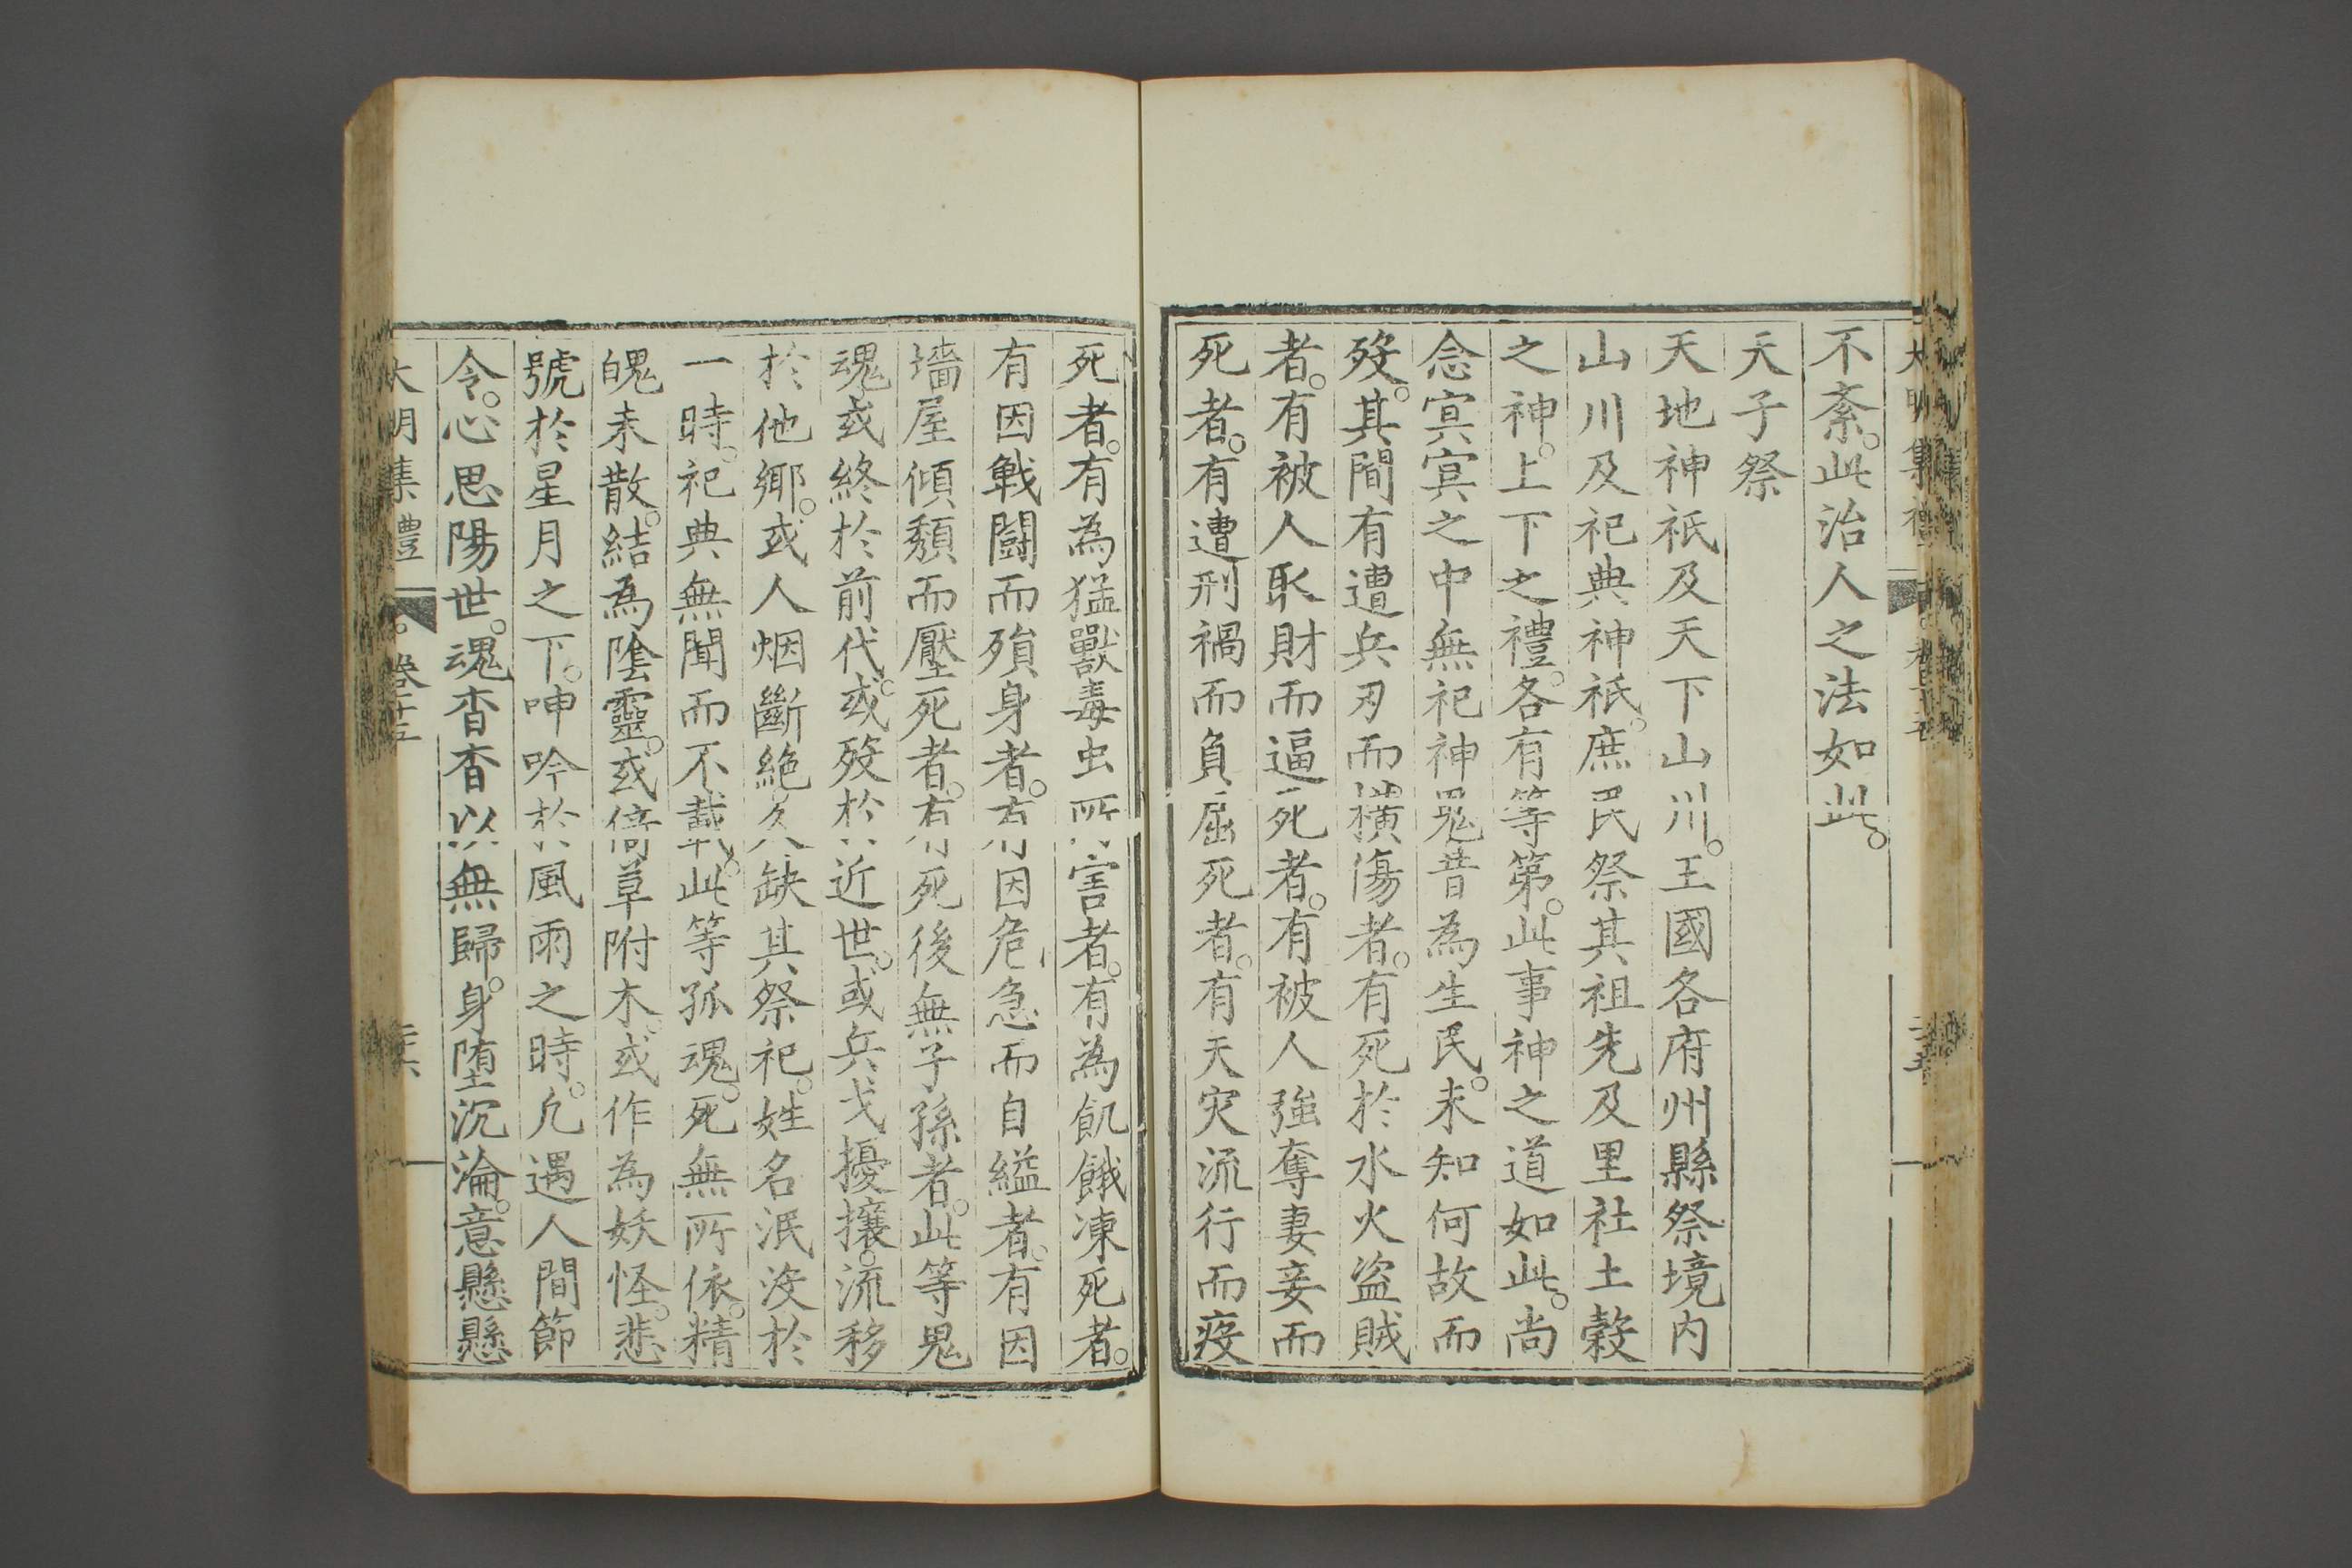 不紊。此治人之法如此。
天子祭
天地神祇及天下山川。王國各府州縣祭境内
山川及祀典神祇。庶民祭其祖先及里社土穀
之神。上下之禮。各有等第。此事神之道如此。尚
念冥冥之中無祀神鬼昔為生民。未知何故而
歿。其間有遭兵刃而横傷者。有死於水火盗賊
者。有被人取財而逼死者。有被人強奪妻妾而
死者。有遭刑禍而負屈死者。有天灾流行而疫
死者。有為猛獸毒虫所害者。有為飢餓凍死者。
有因戰闘而殞身者。有因危急而自縊者。有因
墻屋傾頽而壓死者。有死後無子孫者。此等鬼
魂或終於前代。或歿於近世。或兵戈擾攘。流移
於他郷。或人烟斷絶久缺其祭祀。姓名泯没於
一時。祀典無聞而不載。此等孤魂。死無所依。精
魄未散。結為陰靈。或倚草附木。或作為妖怪。悲
號於星月之下。呻吟於風雨之時。凢遇人間節
令。心思陽世。魂杳杳以無歸。身堕沉淪。意懸懸
大明集禮 卷十五 二十六